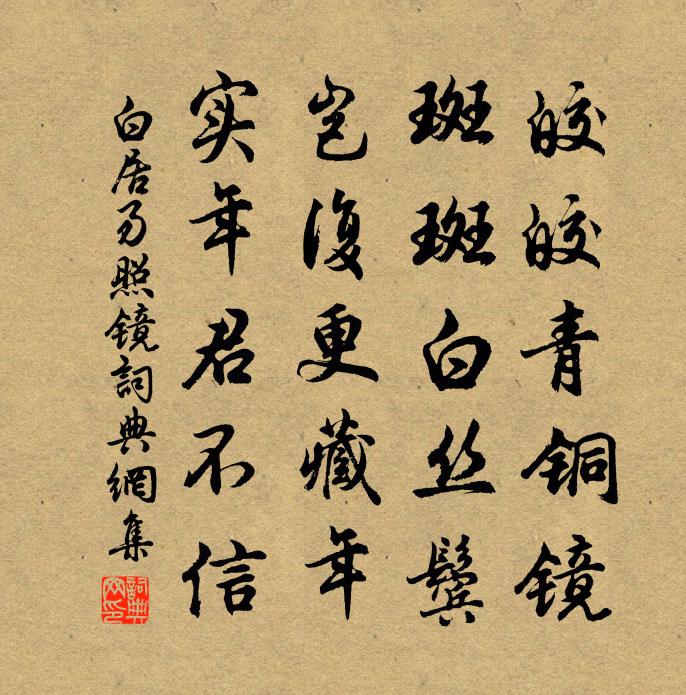 皎皎青铜镜
斑斑白丝鬓
岂復更藏年
实年君不信
白居易照镜詞典網集
詞典网印